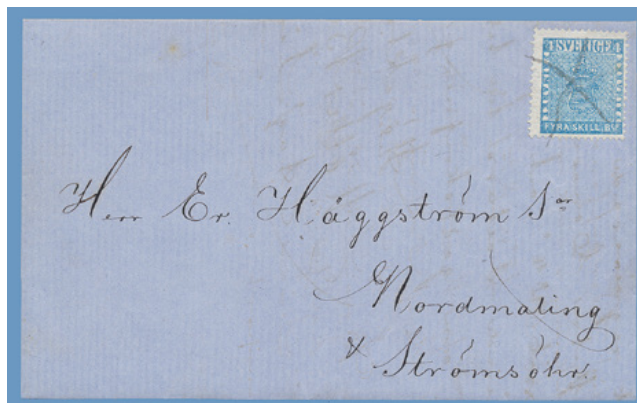 4 SVERIGE 4
FYRA SKILL. BCO
Herr Er. Häggström Sor
Nordmaling
& Strömsöhr.